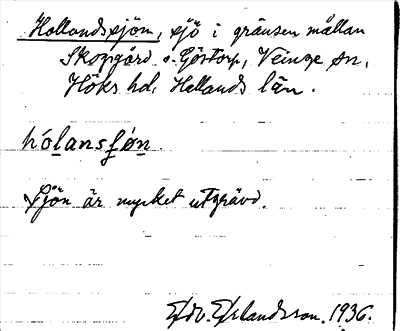 Hollandssjön, sjö i gränsen mållan
Skoggård o. Göstorp, Veinge sn,
Höks hd, Hallands län.
hólansʃøn.
Sjön är mycket utgrävd.
Edv. Erlandsson. 1936.